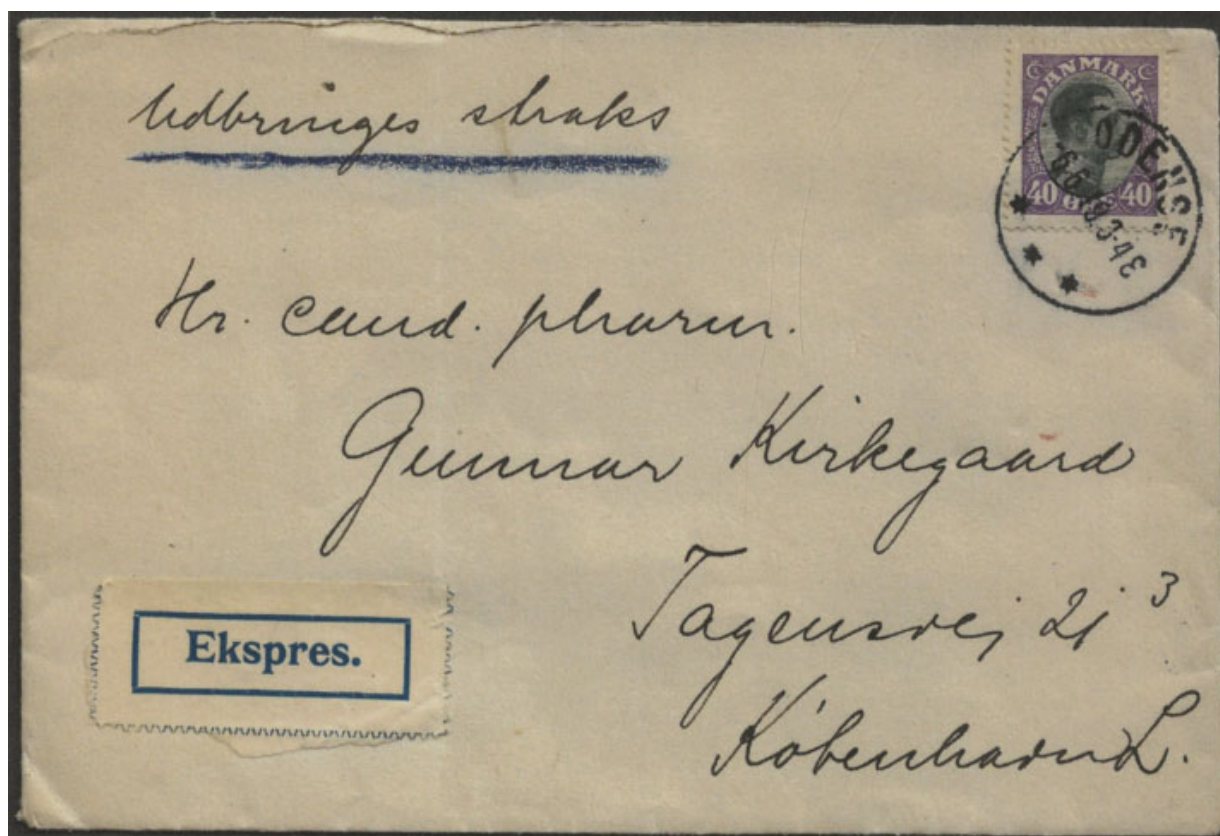 Udbringes straks
DANMARK
40 ØRE 40
ODENSE
Hr. cand. pharm.
Gunnar Kirkegaard
Tagensvej 21 3
København L.
Ekspres.